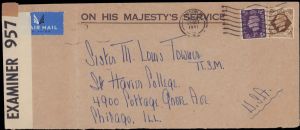 ON HIS MAJESTY'S SERVICE
AIR MAIL
EXAMINER 957
Sister M. Louis Towara
I.B.M.
St Xavier College,
4900 Cottage Grove Ave
Chicago, Ill.
U.S.A.